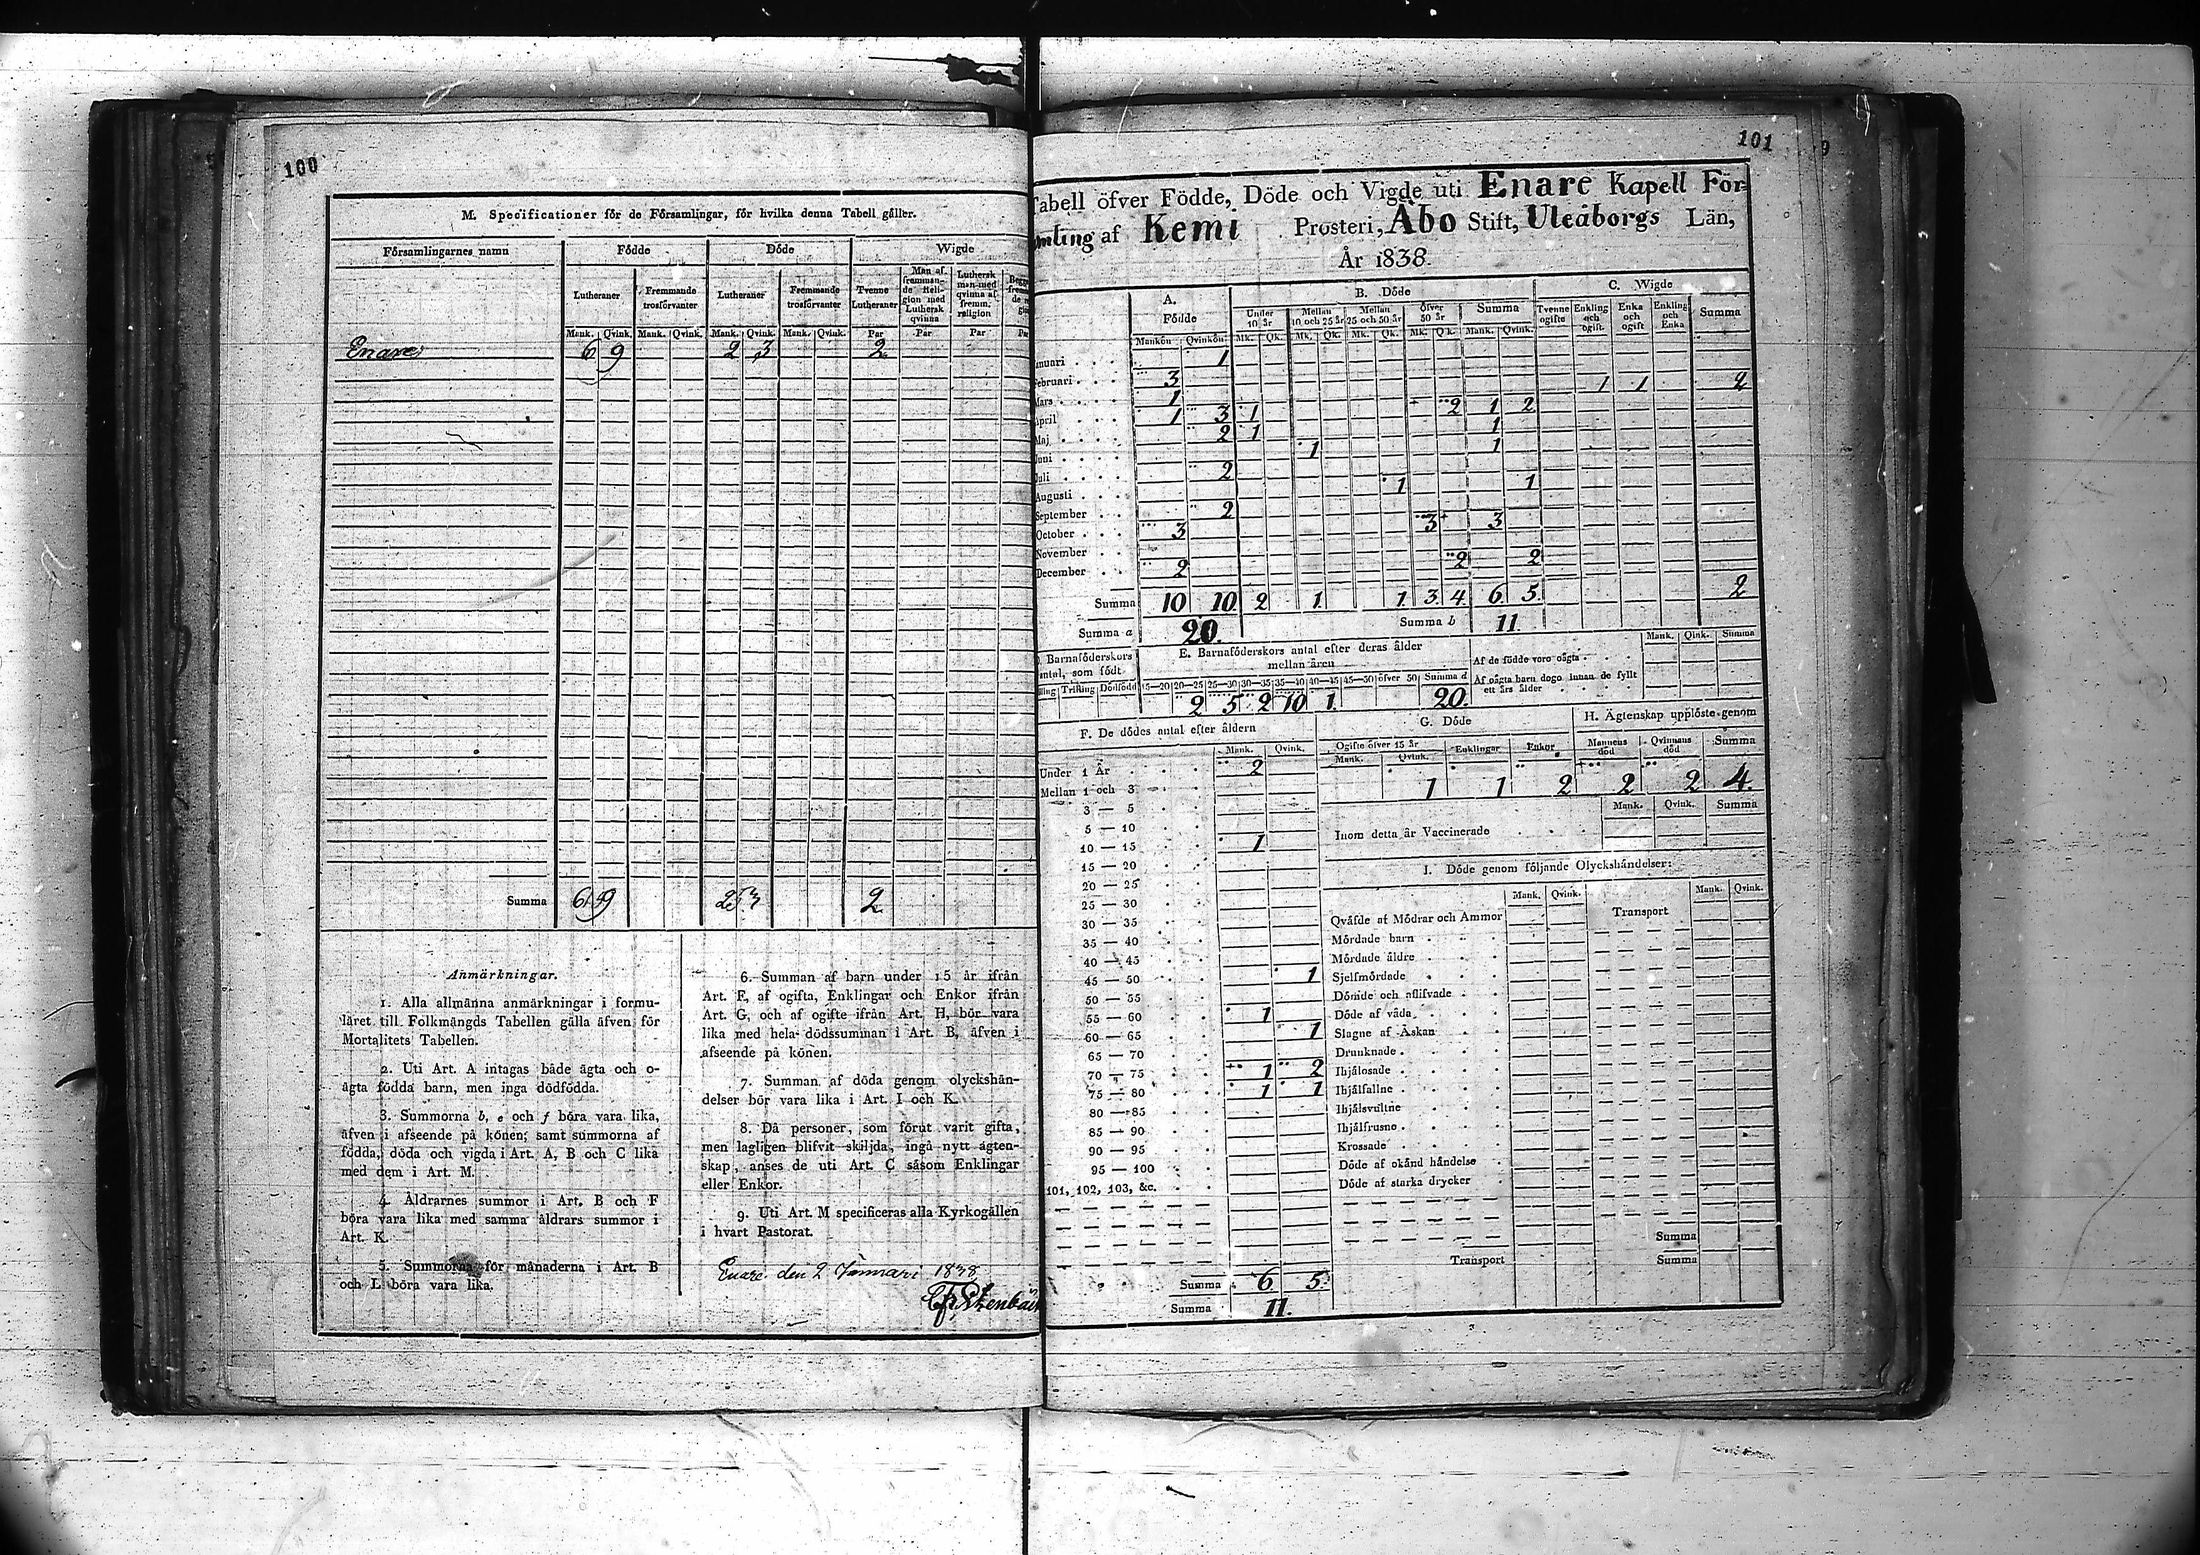 100
M. Specificationer för de Församlingar, för hvilka denna Tabell gäller.
Församlingarnes namn Födde Döde Wigde
Lutheraner Fremmande trosförvanter Lutheraner Fremmande trosförvanter Tvenne Lutheraner Man af fremmande Religion med Luthersk qvinna Luthersk man med qvinna af fremm. religion
Mank. Qvink. Mank. Qvink. Mank. Qvink. Mank. Qvink. Par Par Par
Enare 6 9 2 3 2
Summa 6 9 2 3 2
Anmärkningar.
1. Alla allmänna anmärkningar i formu-
läret till Folkmängds Tabellen gälla äfven för
Mortalitets Tabellen.
2. Uti Art. A intagas både ägta och o-
ägta födda barn, men inga dödfödda.
3. Summorna b, e och f böra vara lika,
äfven i afseende på könen; samt summorna af
födda, döda och vigda i Art. A, B och C lika
med dem i Art. M.
4. Åldrarnes summor i Art. B och F
böra vara lika med samma åldrars summor i
Art. K.
5. Summorna för månaderna i Art. B
och L böra vara lika.
6. Summan af barn under 15 år ifrån
Art. F, af ogifta, Enklingar och Enkor ifrån
Art. G, och af ogifte ifrån Art. H, bör vara
lika med hela dödssumman i Art. B, äfven i
afseende på könen.
7. Summan af döda genom olyckshän-
delser bör vara lika i Art. I och K.
8. Då personer, som förut varit gifta,
men lagligen blifvit skiljda, ingå nytt ägten-
skap, anses de uti Art. C såsom Enklingar
eller Enkor.
9. Uti Art. M specificeras alla Kyrkogällen
i hvart Pastorat.
Enare den 2 Januari 1838
101
Tabell öfver Födde, Döde och Vigde uti Enare Kapell För-
samling af Kemi Prosteri, Åbo Stift, Uleåborgs Län,
År 1838.
A. Födde B. Döde C. Wigde
Under 10 år Mellan 10 och 25 år Mellan 25 och 50 år öfver 50 år Summa Tvenne ogifte Enkling och ogift Enka och ogift Enkling och Enka Summa
Mankön Qvinkön Mk. Qk. Mk. Qk. Mk. Qk. Mk. Qk. Mank. Qvink.
Januari 1
Februari 3 1 1 2
Mars 1
April 1 3 1 2 1 2
Maj 2 1 1
Juni 1 1
Juli 2
Augusti 1 1
September 2
October 3 3 3
November
December 2 2 2
Summa 10 10 2 1 1 3 4 6 5 2
Summa a 20. Summa b 11
D. Barnaföderskors antal, som födt
Trilling Dödfödd
E. Barnaföderskors antal efter deras ålder mellan åren
15—20 20—25 25—30 30—35 35—40 40—45 45—50 öfver 50 Summa d
2 5 2 10 1 20.
Mank. Qink. Summa
Af de födde voro oägta
Af oägta barn dogo innan de fyllt
ett års ålder
F. De dödes antal efter åldern
Mank. Qvink.
Under 1 År 2
Mellan 1 och 3
3 — 5
5 — 10
10 — 15 1
15 — 20
20 — 25
25 — 30
30 — 35
35 — 40
40 — 45
45 — 50 1
50 — 55
55 — 60 1
60 — 65 1
65 — 70
70 — 75 1 2
75 — 80 1 1
80 — 85
85 — 90
90 — 95
95 — 100
101, 102, 103, &c.
Summa 6 5
Summa 11.
G. Döde
Ogifte öfver 15 år Enklingar Enkor
Mank. Qvink.
1 1 2
H. Ägtenskap upplöste genom
Mannens död Qvinnans död Summa
2 2 4.
Mank. Qvink. Summa
Inom detta år Vaccinerade
I. Döde genom följande Olyckshändelser:
Mank. Qvink. Mank. Qvink.
Qväfde af Mödrar och Ammor Transport
Mördade barn
Mördade äldre
Sjelfmördade
Dömde och aflifvade
Döde af våda
Slagne af Åskan
Drunknade
Ihjälosade
Ihjälfallne
Ihjälsvultne
Ihjälfrusne
Krossade
Döde af okänd händelse
Döde af starka drycker
Summa
Transport Summa